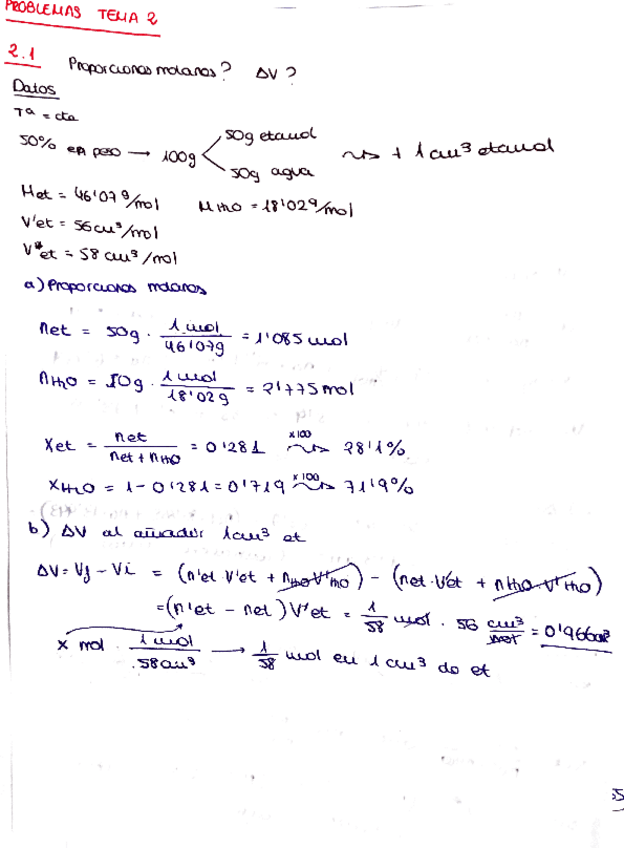 PROBLEMAS TEMA 2
2.1 Proporciones molares? ΔV?
Datos
Tª = cte
50% en peso → 100g
50g etanol
50g agua
⇝ + 1 cm³ etanol
Met = 46'07 g/mol MH₂O = 18'02 g/mol
V'et = 56 cm³/mol
V*et = 58 cm³/mol
a) Proporciones molares
net = 50g · 1 mol / 46'07g = 1'085 mol
nH₂O = 50g · 1 mol / 18'02g = 2'775 mol
Xet = net / net + nH₂O = 0'281 ⇝ x100 28'1%
XH₂O = 1 - 0'281 = 0'719 ⇝ x100 71'9%
b) ΔV al añadir 1cm³ et
ΔV = Vf - Vi = (n'et V'et + nH₂O V'H₂O) - (net · V'et + nH₂O · V'H₂O)
= (n'et - net) V'et = 1/58 mol · 56 cm³/mol = 0'966 cm³
x mol · 1 mol / 58 cm³ → 1/58 mol en 1 cm³ de et